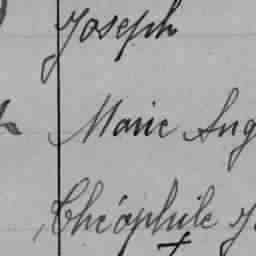 Joseph
Marie Aug
Théophile J